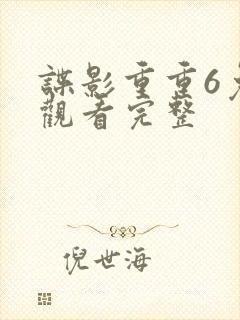 諜影重重6
觀看完整
倪世海